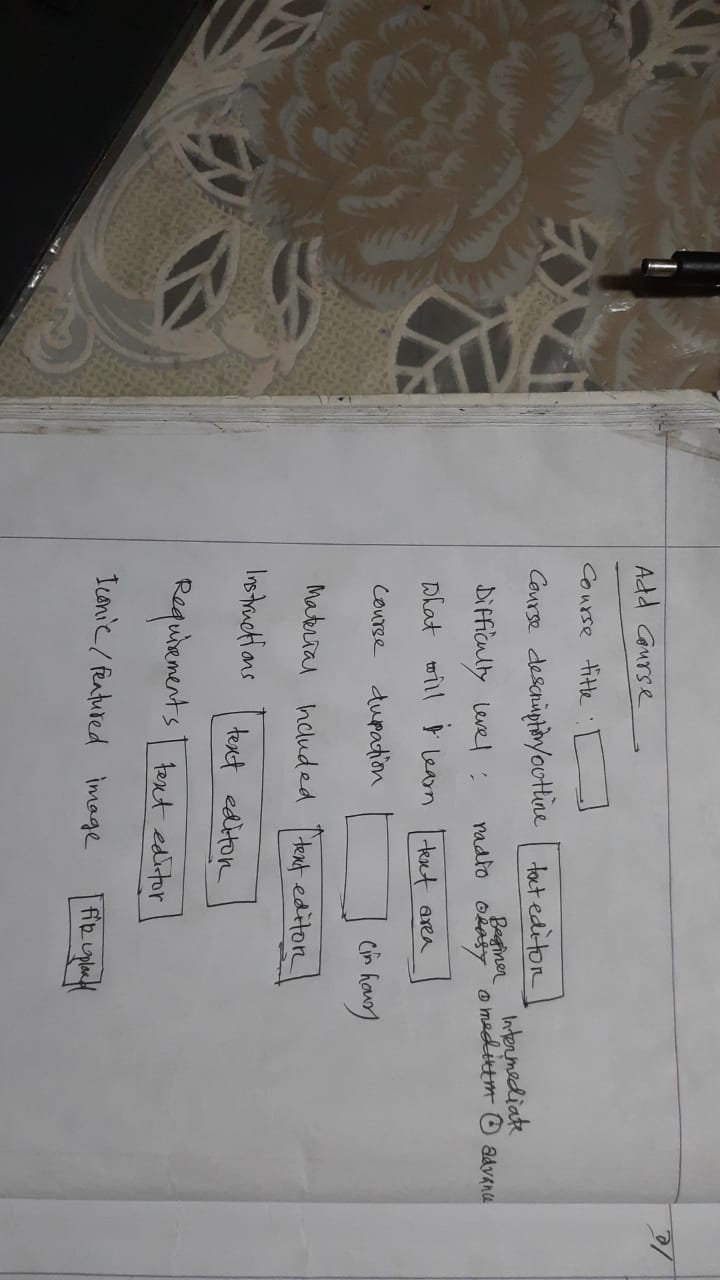 Add Course
Course title :
Course description/outline text editor
Beginer Intermediate
Difficulty level : radio easy medium advance
What will I learn text area
Course duration (in hour)
Material Included text editor
Instructions text editor
Requirements text editor
Iconic/featured image file upload